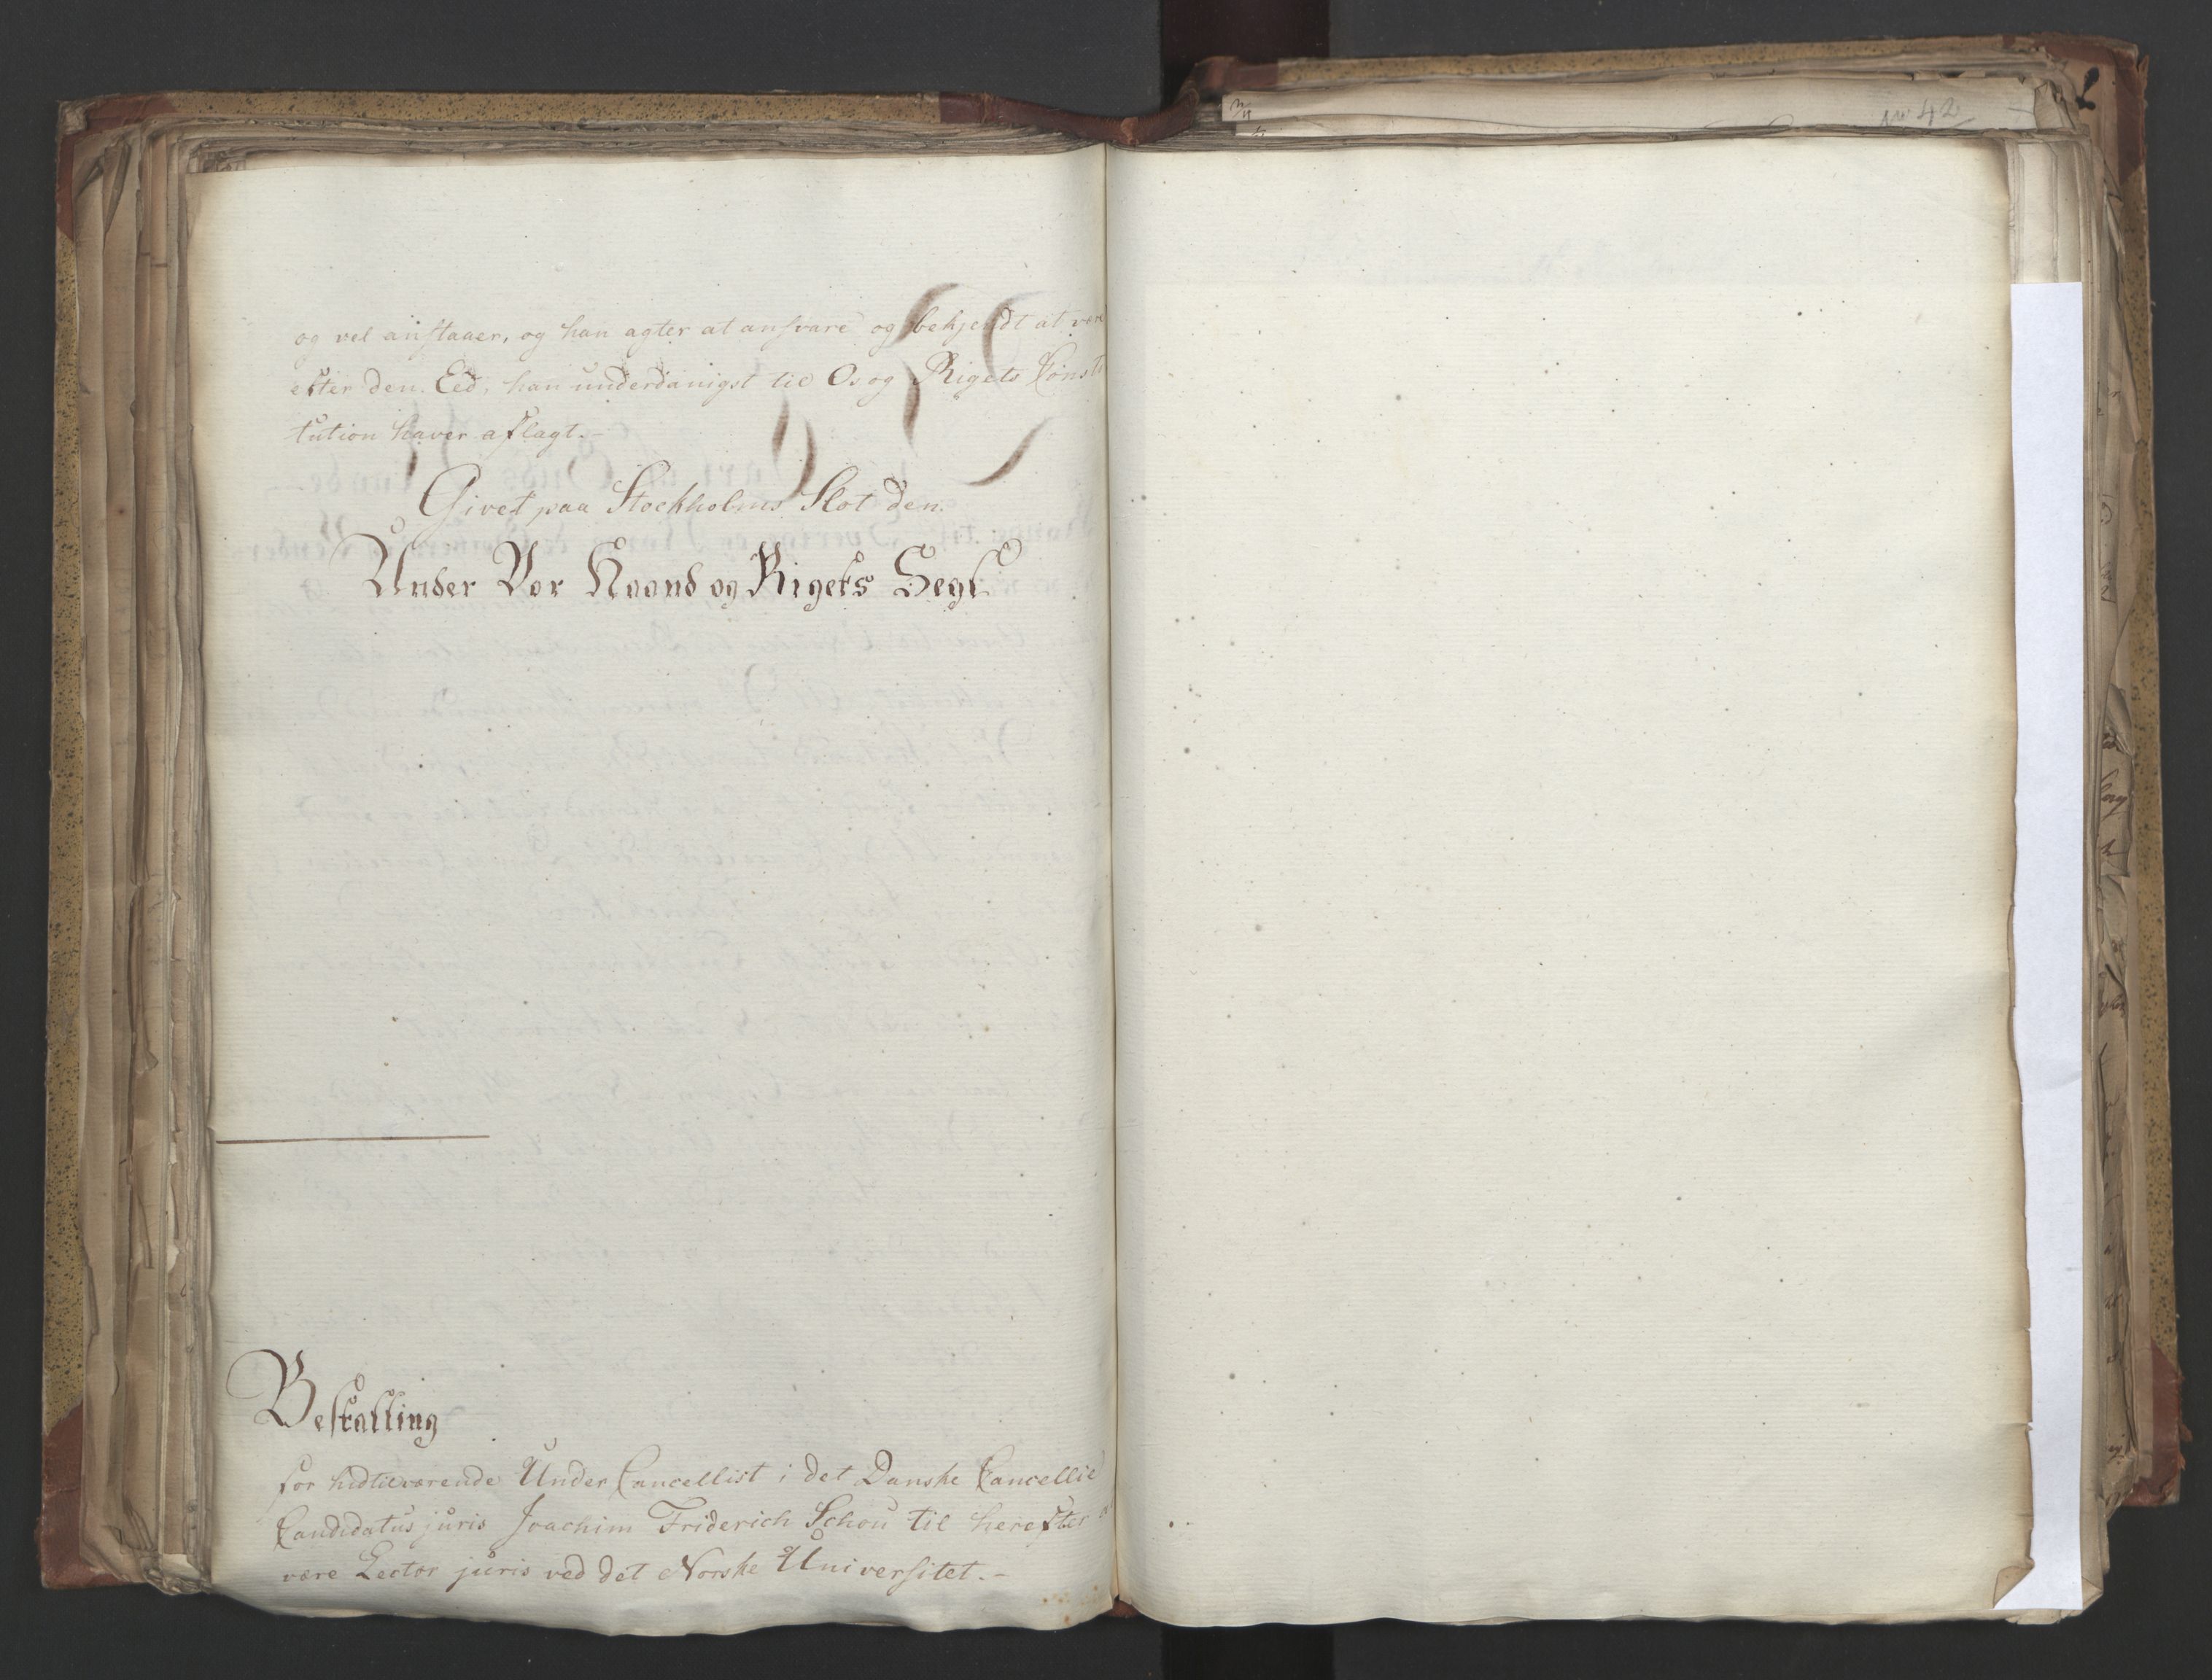 og vel anstaaer, og han agter at ansvare og bekjendt at være
efter den Eed, han underdanigst til Os og Rigets Consti
tution haver aflagt.-
Givet paa Stockholms Slot den
Under Vor Haand og Rigets Segl
Bestalling
for hidtilværende Under Cancellist i det Danske Cancellie
Candidatus juris Joachim Friderich Schou til herefter at
være Lector juris ved det Norske Universitet.-
No 42